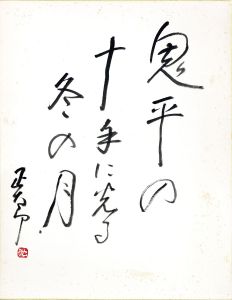 鬼平の
十手に光る
冬の月
正太郎